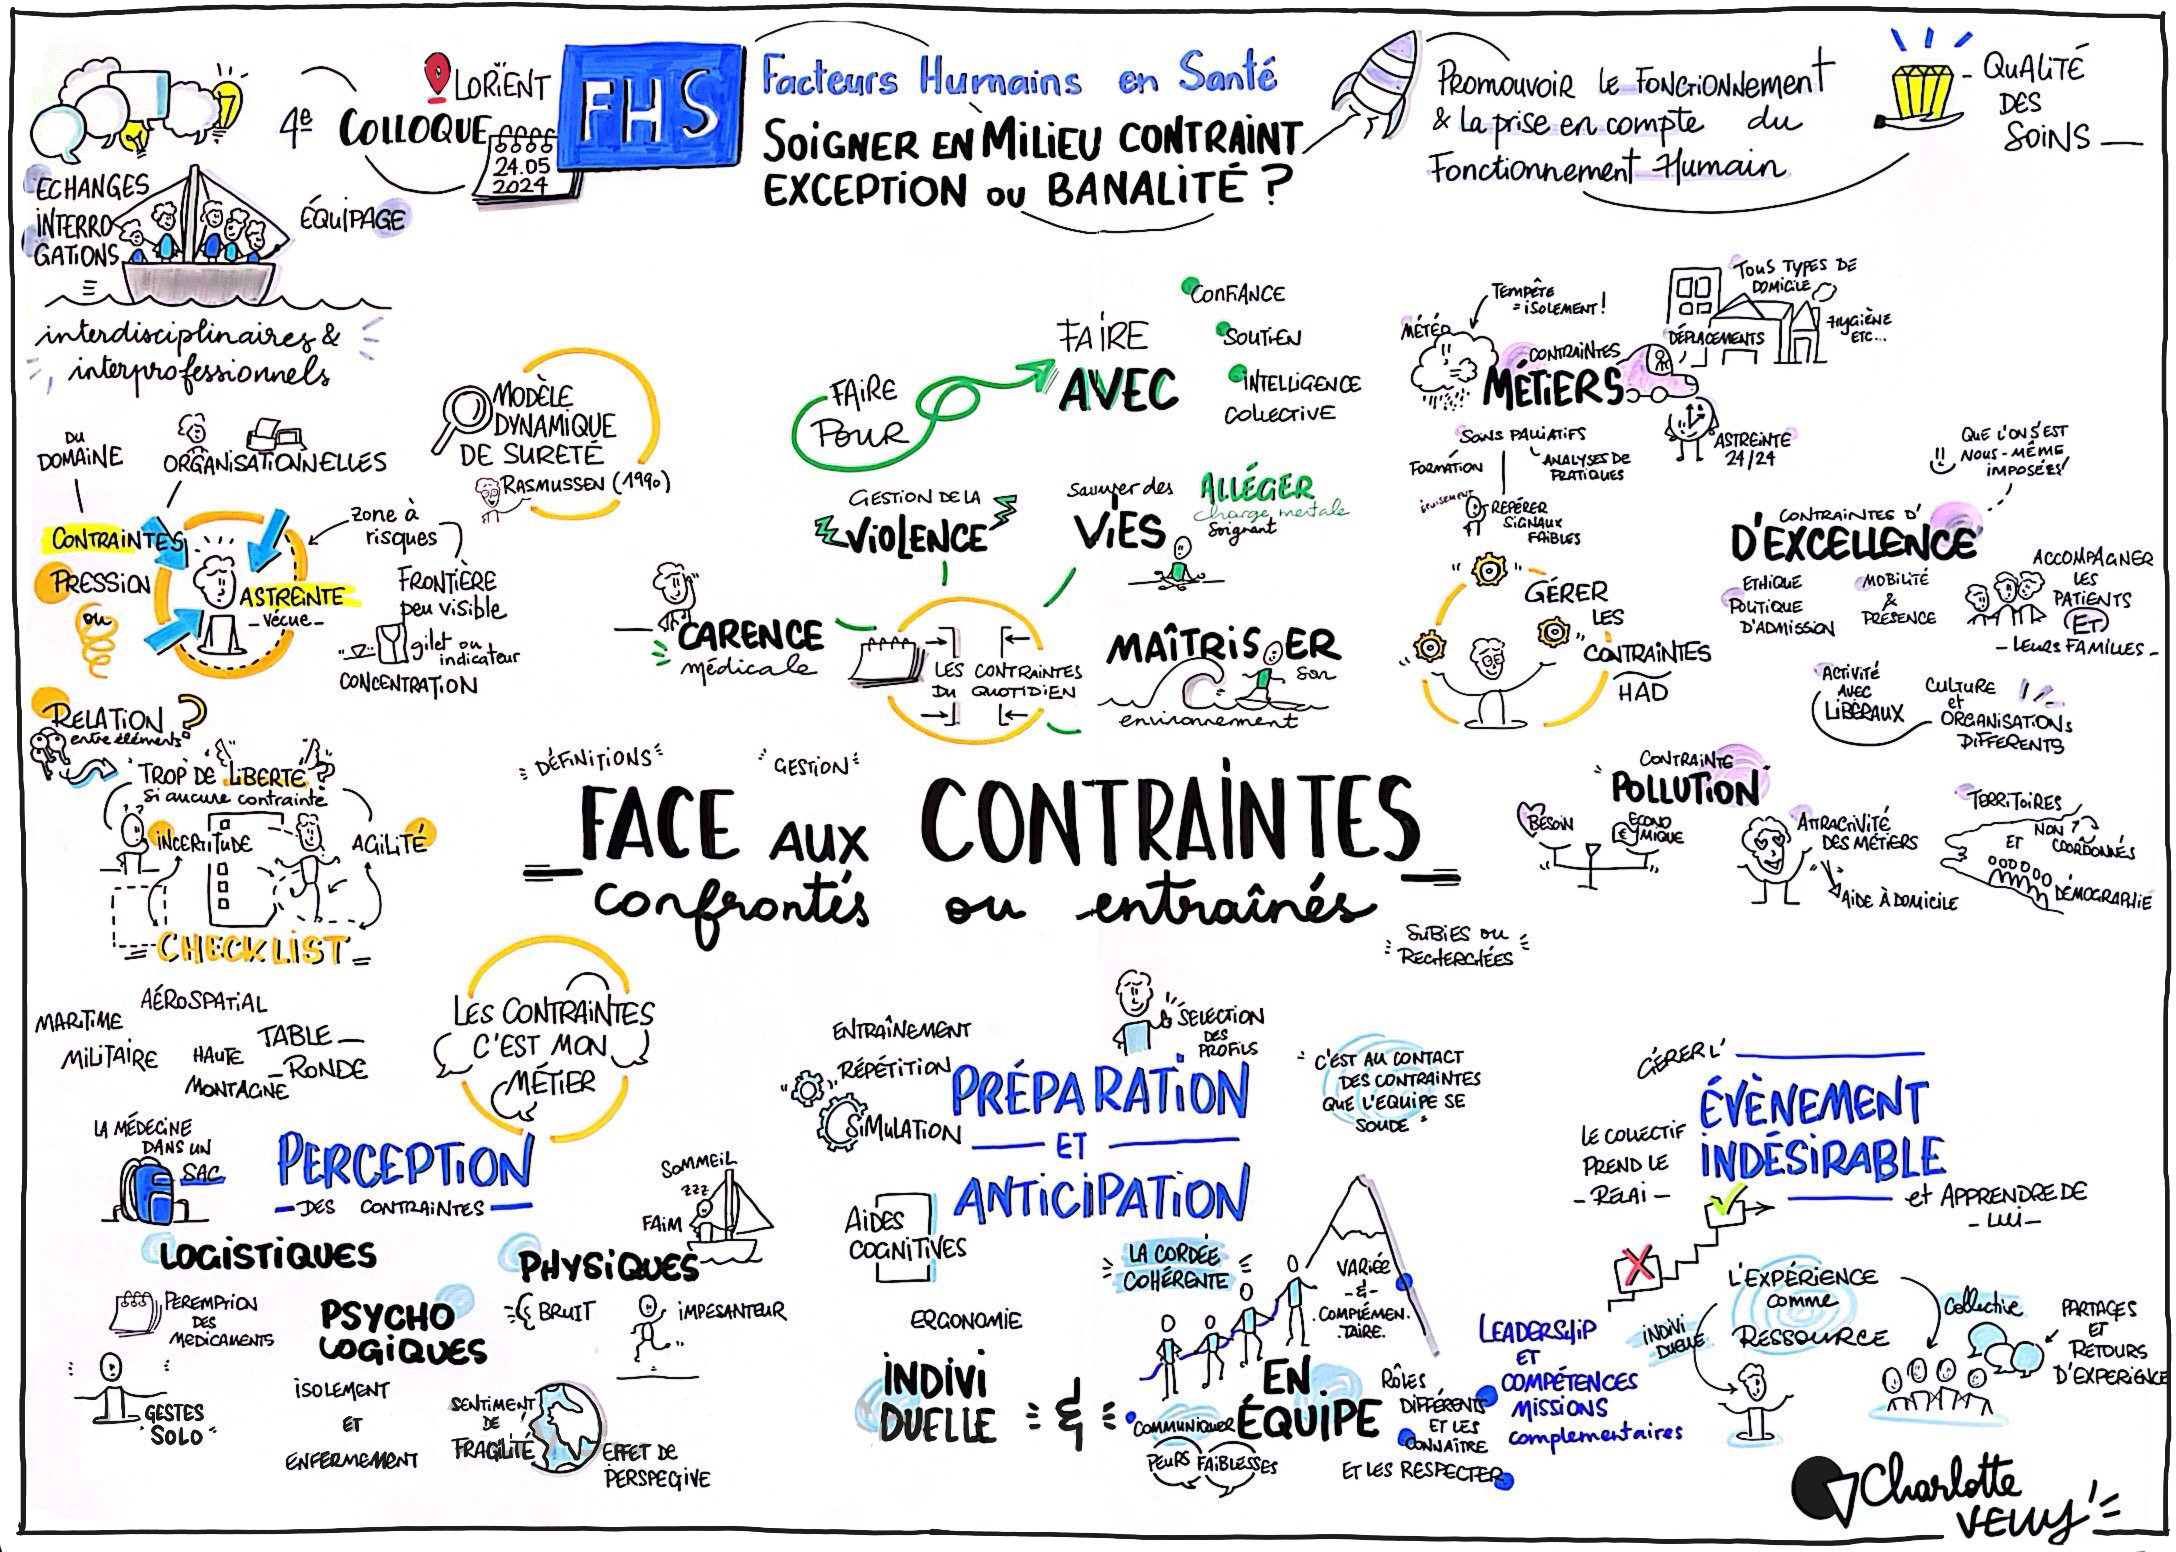 4e COLLOQUE
LORÏENT
24.05
2024
FHS
Facteurs Humains en Santé
SOIGNER EN MILIEU CONTRAINT
EXCEPTION ou BANALITÉ ?
PROMOUVOIR LE FONCTIONNEMENT
& La prise en compte du
Fonctionnement Humain
QUALITÉ
DES
SOINS
ECHANGES
INTERRO
GATIONS
ÉQUIPAGE
interdisciplinaires &
interprofessionnels
MODÈLE
DYNAMIQUE
DE SURETÉ
RASMUSSEN (1990)
DU
DOMAINE
ORGANISATIONNELLES
CONTRAINTES
PRESSION
ou
ASTREINTE
- vécue -
zone à
risques
FRONTIÈRE
peu visible
gilet ou
indicateur
CONCENTRATION
RELATION ?
entre éléments
"TROP DE LIBERTÉ"?
Si aucune contrainte
INCERTITUDE
AGILITÉ
= CHECKLIST =
FAIRE
POUR
FAIRE
AVEC
CONFIANCE
SOUTIEN
INTELLIGENCE
COLLECTIVE
GESTION DE LA
VIOLENCE
Sauver des
VIES
ALLÉGER
charge mentale
Soignant
CARENCE
médicale
LES CONTRAINTES
DU QUOTIDIEN
MAÎTRISER
son
environnement
MÉTÉO
TEMPÊTE
= ISOLEMENT !
CONTRAINTES
MÉTIERS
DÉPLACEMENTS
TOUS TYPES DE
DOMICILE
HYGIÈNE
ETC...
ASTREINTE
24/24
SOINS PALLIATIFS
FORMATION
ANALYSES DE
PRATIQUES
REPÉRER
SIGNAUX
FAIBLES
GÉRER
LES
CONTRAINTES
HAD
QUE L'ON S'EST
NOUS-MÊME
IMPOSÉES!
CONTRAINTES D'
D'EXCELLENCE
ETHIQUE
POLITIQUE
D'ADMISSION
MOBILITÉ
&
PRÉSENCE
ACCOMPAGNER
LES
PATIENTS
ET
- LEURS FAMILLES -
ACTIVITÉ
AVEC
LIBÉRAUX
CULTURE
et
ORGANISATIONS
DIFFERENTS
CONTRAINTE
"POLLUTION"
BESOIN
ÉCONO
MIQUE
ATTRACTIVITÉ
DES MÉTIERS
AIDE À DOMICILE
TERRITOIRES
NON
COORDONNÉS
ET
DÉMOGRAPHIE
DÉFINITIONS
GESTION
= FACE AUX CONTRAINTES =
confrontés ou entraînés
SUBIES OU
RECHERCHÉES
MARITIME
AÉROSPATIAL
MILITAIRE
HAUTE
MONTAGNE
TABLE -
- RONDE
LES CONTRAINTES
C'EST MON
MÉTIER
LA MÉDECINE
DANS UN
SAC
PERCEPTION
- DES CONTRAINTES -
LOGISTIQUES
PEREMPTION
DES
MEDICAMENTS
GESTES
"SOLO"
PSYCHO
LOGIQUES
ISOLEMENT
ET
ENFERMEMENT
SENTIMENT
DE
FRAGILITÉ
EFFET DE
PERSPECTIVE
SOMMEIL
ZZZ
FAIM
PHYSIQUES
BRUIT
IMPESANTEUR
ENTRAÎNEMENT
RÉPÉTITION
SIMULATION
SELECTION
DES
PROFILS
PRÉPARATION
ET
ANTICIPATION
"C'EST AU CONTACT
DES CONTRAINTES
QUE L'EQUIPE SE
SOUDE"
AIDES
COGNITIVES
ERGONOMIE
INDIVI
DUELLE
&
LA CORDÉE
COHÉRENTE
VARIÉE
- & -
COMPLÉMEN.
TAIRE.
EN
ÉQUIPE
COMMUNIQUER
PEURS FAIBLESSES
RÔLES
DIFFÉRENTS
ET LES
CONNAÎTRE
ET LES RESPECTER
LEADERSHIP
ET
COMPÉTENCES
MISSIONS
complementaires
GÉRER L'
ÉVÈNEMENT
INDÉSIRABLE
et APPRENDRE DE
- LUI -
LE COLLECTIF
PREND LE
- RELAI -
L'EXPÉRIENCE
comme
RESSOURCE
INDIVI
DUELLE
Collective
PARTAGES
ET
RETOURS
D'EXPERIENCE
Charlotte
VELLY